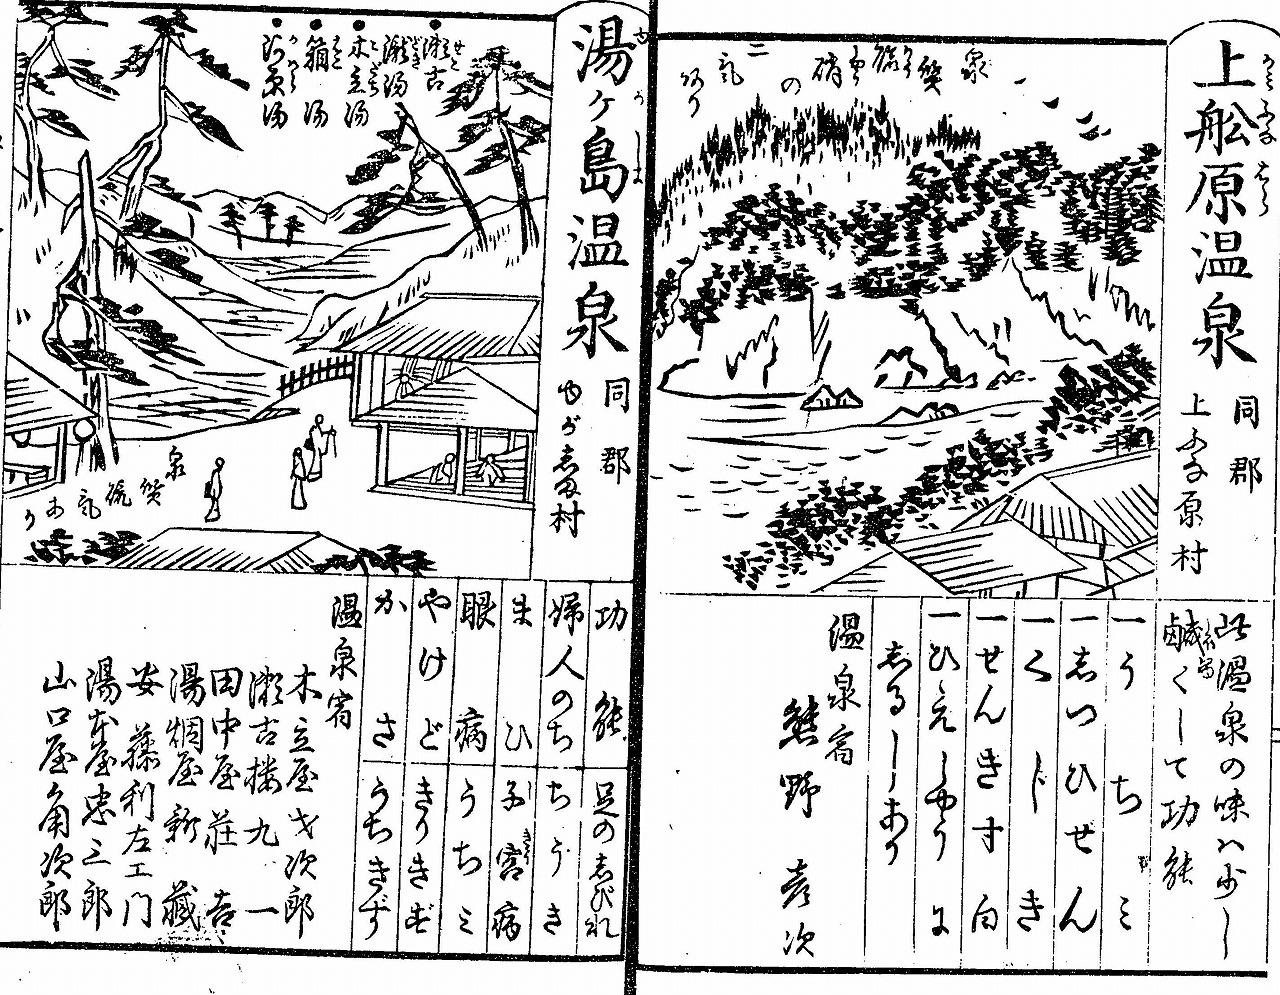 上舩原温泉
かみふなはら
同郡
上ふな原村
泉質硫
硝の
気あり
此温泉の味ハ少し
鹹くして功能
一うちミ
一志つひせん
一くじき
一せんきすはく
一ひへしやうに
志るしあり
温泉宿
熊野彦次
湯ヶ島温泉
ゆがしま
同郡
ゆがしま村
瀬古湯
瀬湯
木立湯
箱湯
河原湯
泉質硫気あり
功能
足の志びれ
婦人のちちうき
まひ
子宮病
眼病
うちミ
やけど
きりきず
かさ
うちきず
温泉宿
木立屋才次郎
瀬古楼九一
田中屋荘吉
湯烟屋新藏
安藤利左エ門
湯本屋忠三郎
山口屋角次郎